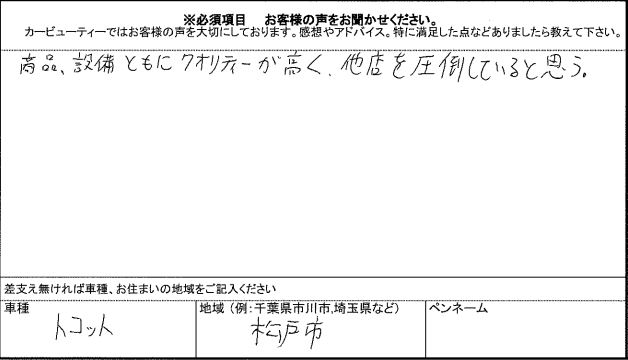 ※必須項目 お客様の声をお聞かせください。
カービューティーではお客様の声を大切にしております。感想やアドバイス。特に満足した点などありましたら教えて下さい。
商品、設備ともにクオリティーが高く、他店を圧倒していると思う。
差支え無ければ車種、お住まいの地域をご記入ください
車種 地域 (例:千葉県市川市,埼玉県など) ペンネーム
トコット 松戸市